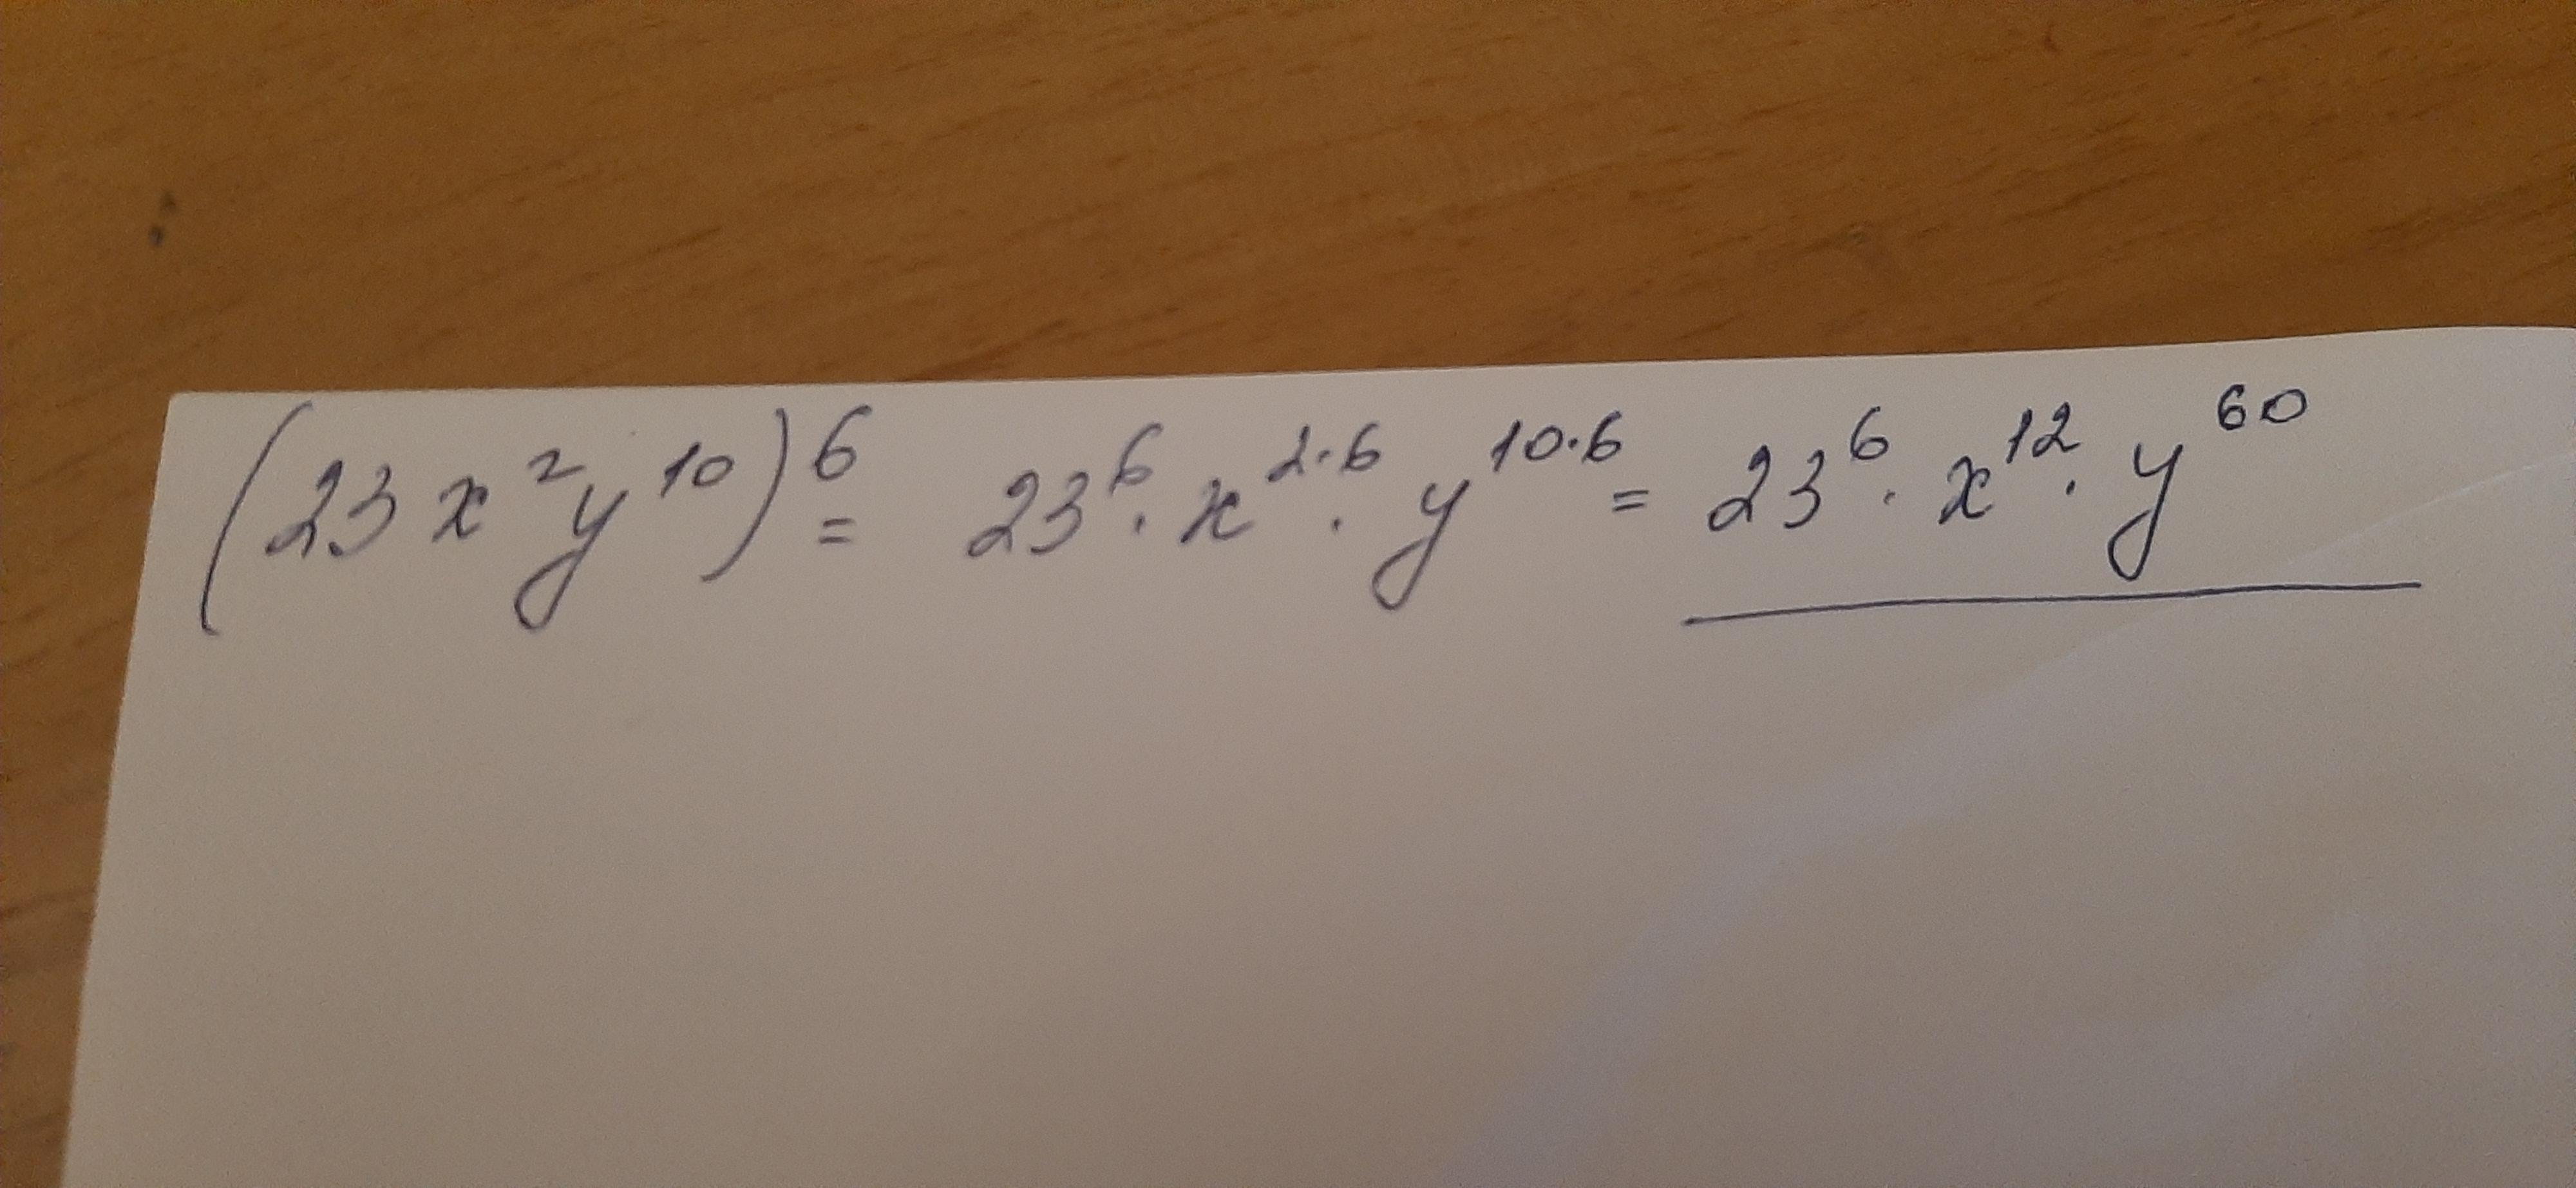 (23x²y¹⁰)⁶ = 23⁶ · x²·⁶ · y¹⁰·⁶ = 23⁶ · x¹² · y⁶⁰